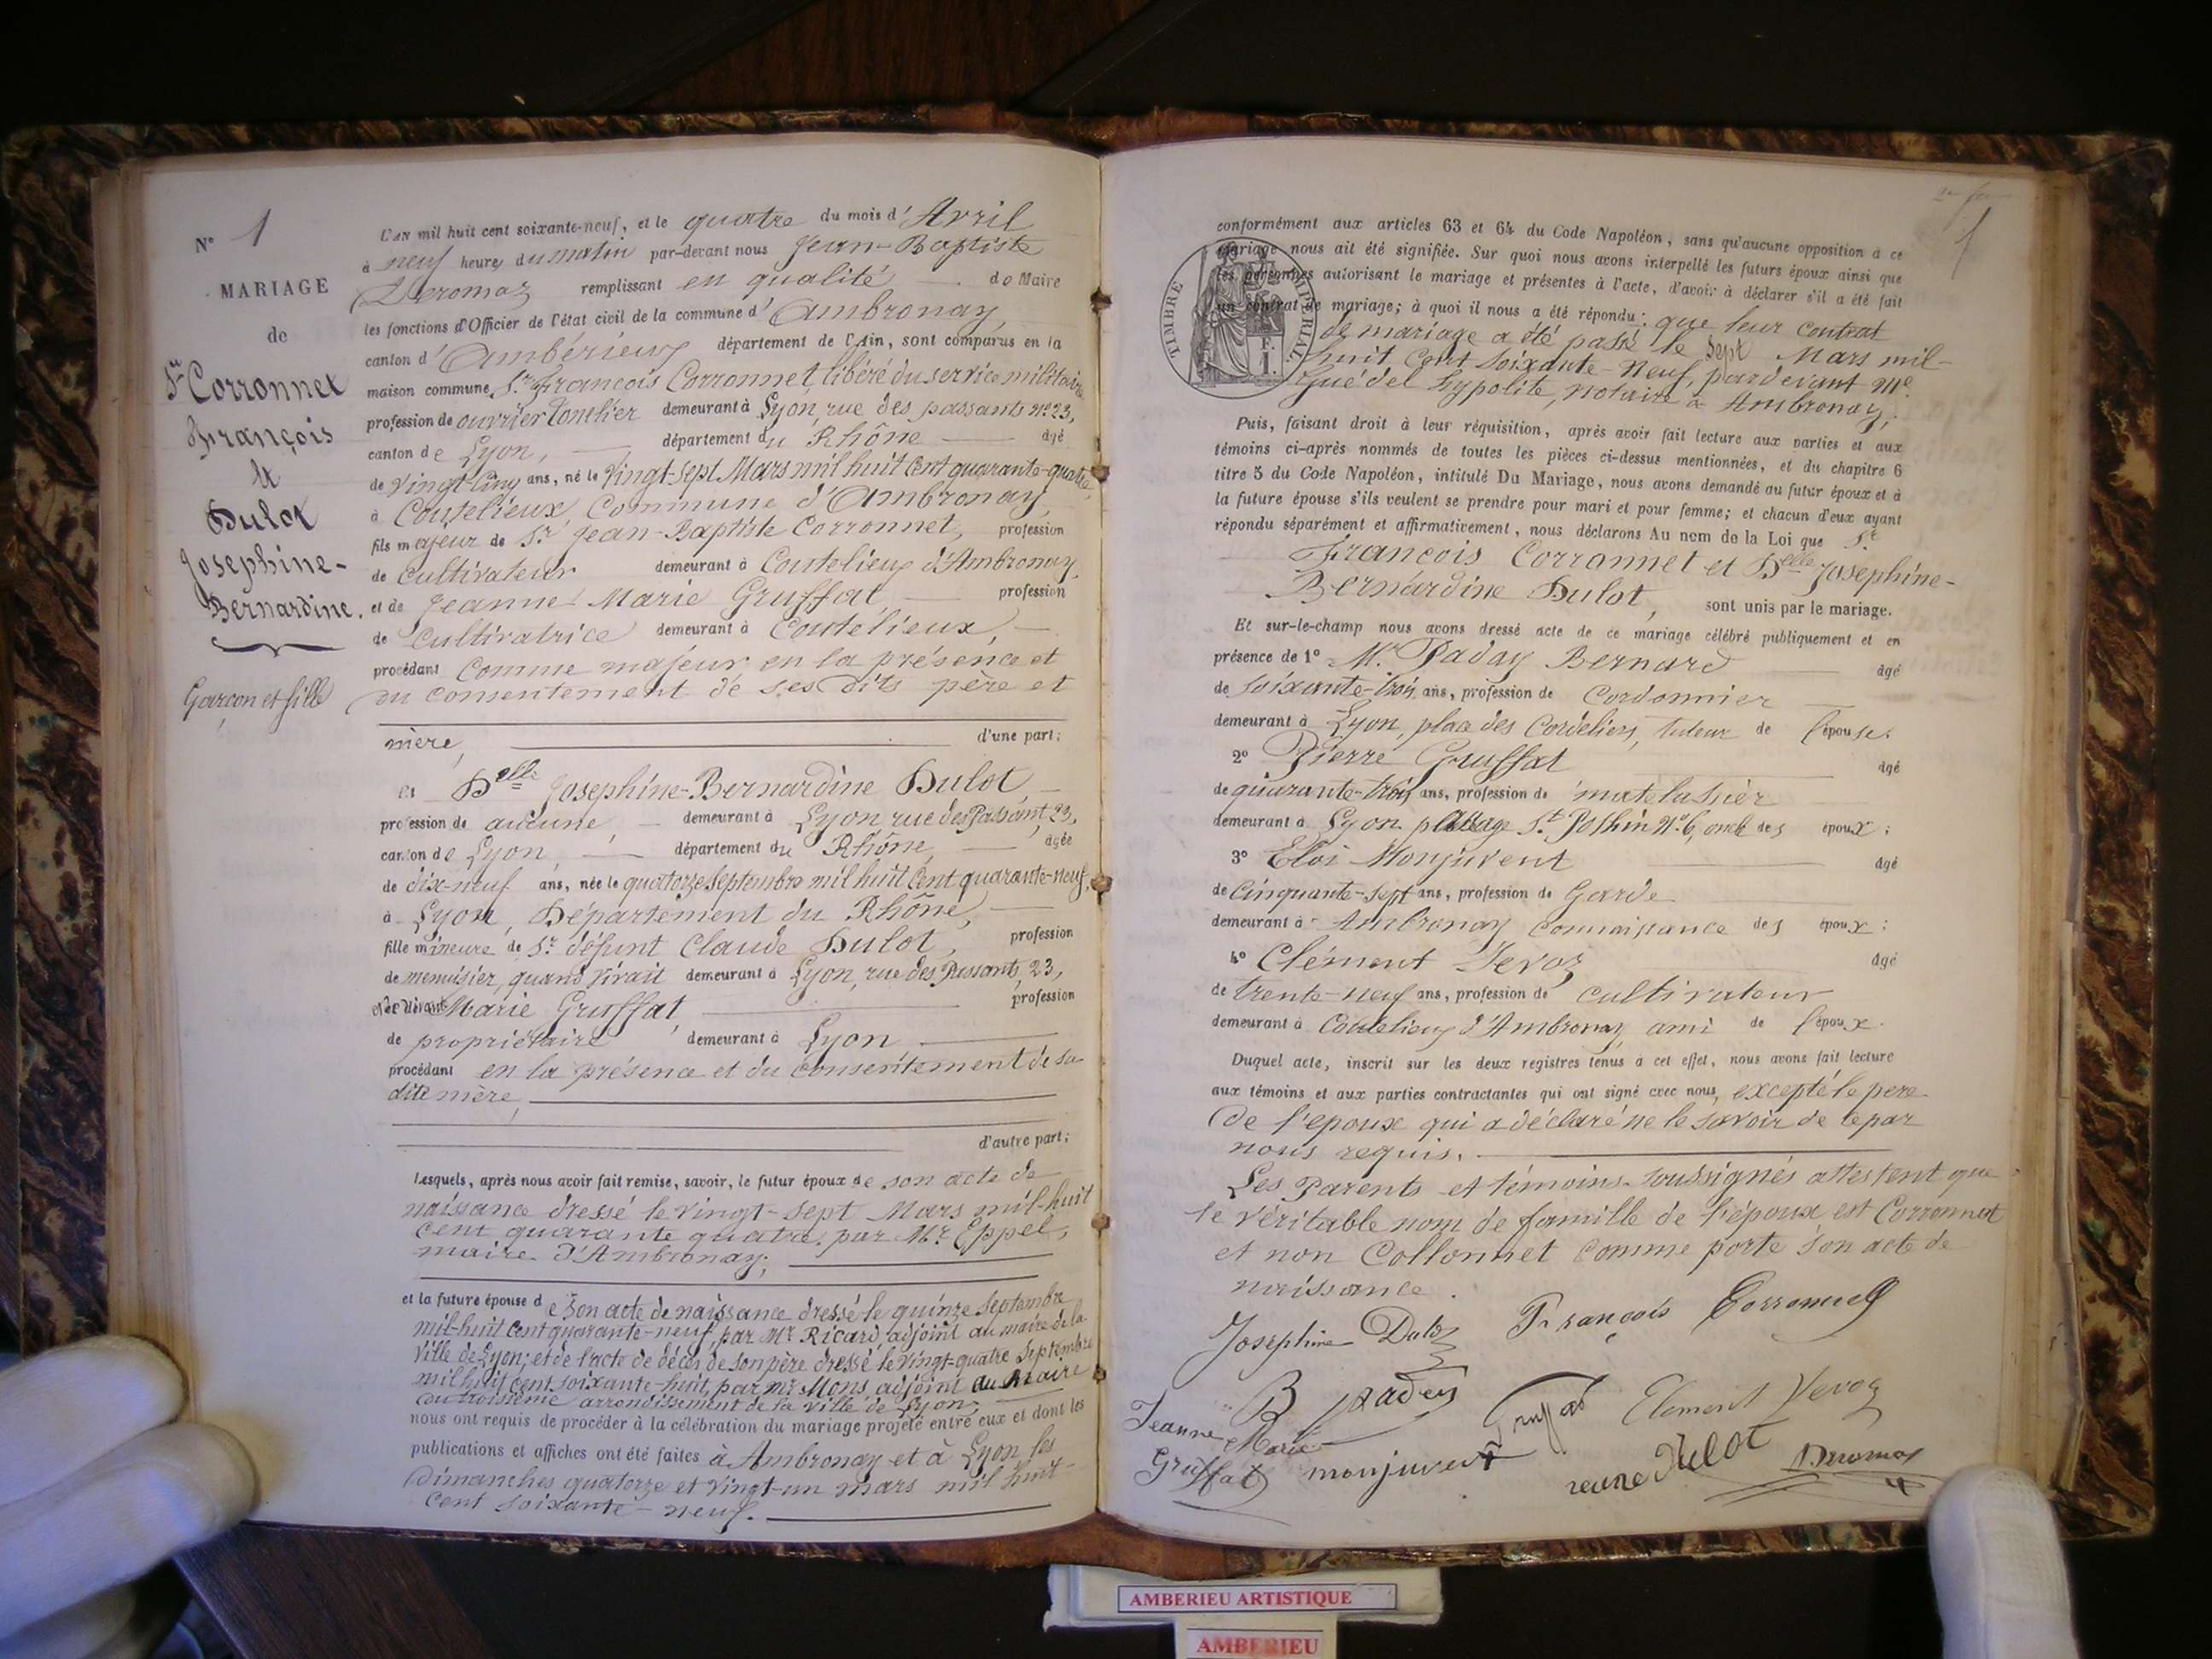 N° 1
MARIAGE
de
Sr Corronnet
François
et
Dulot
Josephine-
Bernardine.
Garçon et fille
L'AN mil huit cent soixante-neuf, et le quatre du mois d'Avril
à neuf heures du matin par-devant nous Jean-Baptiste
Deromaz remplissant en qualité de Maire
les fonctions d'Officier de l'état civil de la commune d'Ambronay,
canton d'Ambérieux département de l'Ain, sont comparus en la
maison commune, Sr François Corronnet, libéré du service militaire
profession de ouvrier tonelier demeurant à Lyon, rue des passants n° 23,
canton de Lyon, département du Rhône âgé
de Vingt Cinq ans, né le Vingt-sept Mars mil huit Cent quarante-quatre,
à Coutelieux, Commune d'Ambronay,
fils majeur de Sr Jean-Baptiste Corronnet, profession
de Cultivateur demeurant à Coutelieux d'Ambronay,
et de Jeanne Marie Gruffat profession
de Cultivatrice demeurant à Coutelieux,
procédant Comme majeur en la présence et
du consentement de ses dits père et
mère, d'une part;
et Delle Josephine-Bernardine Dulot,
profession de aucune, demeurant à Lyon rue des Passant, 23,
canton de Lyon, département du Rhône, âgée
de dix-neuf ans, née le quatorze Septembre mil huit Cent quarante-neuf,
à Lyon, Département du Rhône,
fille mineure de Sr défunt Claude Dulot, profession
de menuisier, quand vivait demeurant à Lyon, rue des Passants, 23,
et de vivante Marie Gruffat, profession
de propriétaire demeurant à Lyon
procédant en la présence et du consentement de sa
dite mère,
d'autre part;
Lesquels, après nous avoir fait remise, savoir, le futur époux de son acte de
naissance dressé le vingt-sept Mars mil-huit
Cent quarante quatre, par Mr Eppel,
maire d'Ambronay;
et la future épouse de son acte de naissance dressé le quinze septembre
mil-huit Cent quarante-neuf, par Mr Ricard, adjoint au maire de la
Ville de Lyon; et de l'acte de décès de son père dressé le vingt-quatre Septembre
mil huit cent soixante-huit, par Mr Mons, adjoint au Maire
du troisième arrondissement de la ville de Lyon;
nous ont requis de procéder à la célébration du mariage projeté entre eux et dont les
publications et affiches ont été faites à Ambronay et à Lyon les
Dimanches quatorze et vingt-un mars mil huit-
Cent soixante-neuf.
conformément aux articles 63 et 64 du Code Napoléon, sans qu'aucune opposition à ce
mariage nous ait été signifiée. Sur quoi nous avons interpellé les futurs époux ainsi que
les personnes autorisant le mariage et présentes à l'acte, d'avoir à déclarer s'il a été fait
un contrat de mariage; à quoi il nous a été répondu: que leur Contrat
de mariage a été passé le sept Mars mil-
huit Cent soixante-Neuf, pardevant Me
Gué del Hypolite, notaire à Ambronay;
TIMBRE IMPÉRIAL.
Puis, faisant droit à leur réquisition, après avoir fait lecture aux parties et aux
témoins ci-après nommés de toutes les pièces ci-dessus mentionnées, et du chapitre 6
titre 5 du Code Napoléon, intitulé Du Mariage, nous avons demandé au futur époux et à
la future épouse s'ils veulent se prendre pour mari et pour femme; et chacun d'eux ayant
répondu séparément et affirmativement, nous déclarons Au nom de la Loi que Sr
François Corronnet et Delle Josephine-
Bernardine Dulot, sont unis par le mariage.
Et sur-le-champ nous avons dressé acte de ce mariage célébré publiquement et en
présence de 1° Mr Paday Bernard âgé
de soixante-trois ans, profession de Cordonnier
demeurant à Lyon, place des Cordeliers, tuteur de l'épouse.
2° Pierre Gruffat âgé
de quarante-trois ans, profession de matelassier
demeurant à Lyon passage St Pothin N° 6, oncle des époux;
3° Eloi Monjuvent âgé
de Cinquante-sept ans, profession de Garde
demeurant à Ambronay connaissance des époux;
4° Clément Jevoz âgé
de trente-neuf ans, profession de Cultivateur
demeurant à Coutelieux d'Ambronay, ami de l'époux.
Duquel acte, inscrit sur les deux registres tenus à cet effet, nous avons fait lecture
aux témoins et aux parties contractantes qui ont signé avec nous, excepté le pere
de l'epoux qui a déclaré ne le savoir de ce par
nous requis.
Les Parents et témoins soussignés attestent que
le véritable nom de famille de l'époux est Corronnet
et non Collonnet Comme porte son acte de
naissance.
Josephine Dulot François Corronnet
B paday Gruffat Clement Jevoz
Jeanne Marie
Gruffat monjuvent Dulot Deromaz
AMBERIEU ARTISTIQUE
AMBERIEU